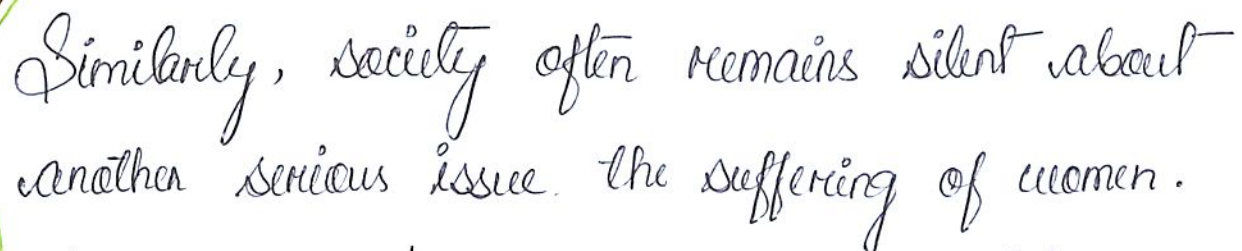 Similarly, society often remains silent about
another serious issue. the suffering of women.